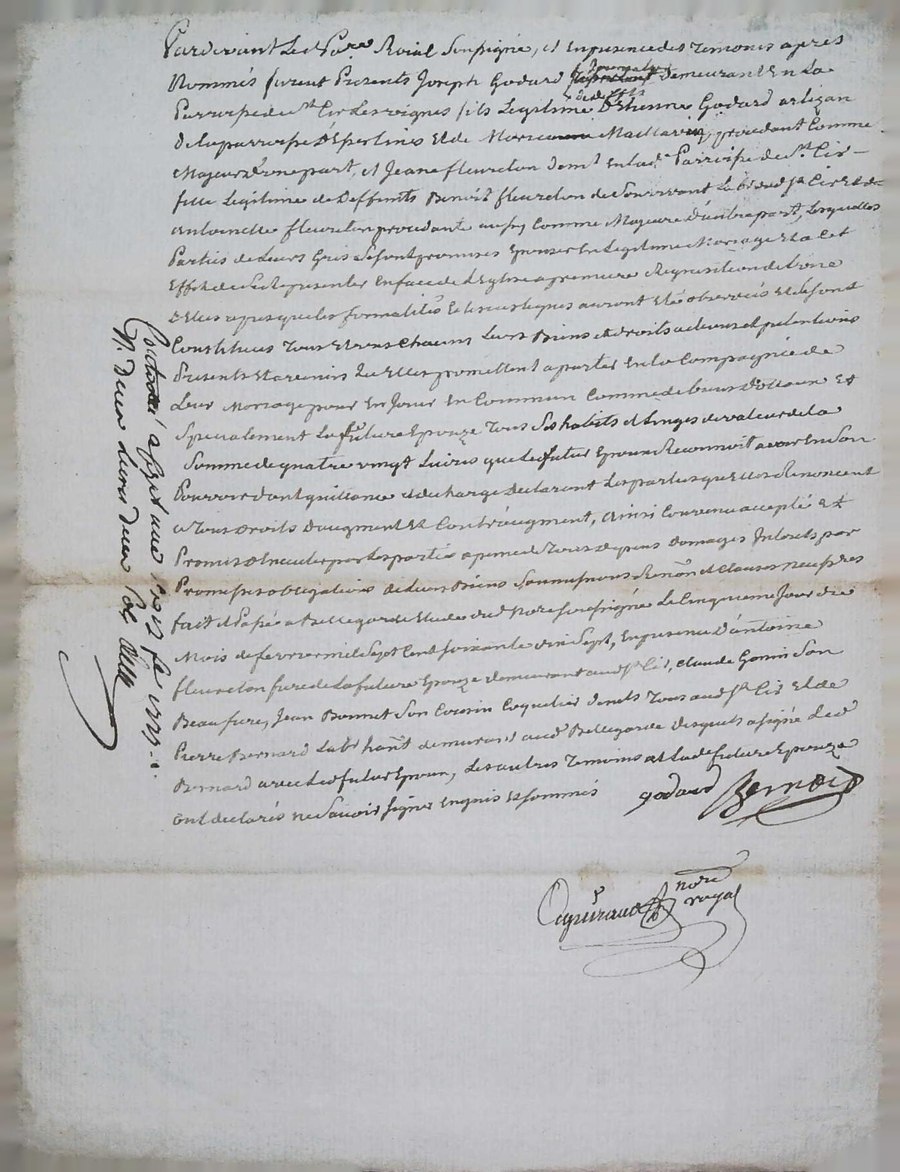 Pardevant Le Nore Roial Soussigné, et En presence des Temoins apres
Nommés furent Presents Joseph Godard Journalier Demeurant En La
Parroisse de st Cir Les vignes fils Legitime D'Etienne Godard artizan
de la parroisse D'Epertines Et de Marie Maillavin, procedant Comme
Majeur D'une part, et Jeane fleureton demt En lad. Parroisse de st Cir
fille Legitime de Deffunts Benoit fleureton de Son vivant Labr aud st Cir Et de
antoinette fleureton procedante aussy Comme Majeure D'autre part, Lesquelles
Parties de Leurs Grés se sont promises Epouser En Legitime Mariage Et a Cet
Effet de se Representer En face de L'Eglise a premiere Requisition de L'une
D'Elles apres que les formalités Eclesiastiques auront Eté observées Et se sont
Constitués Tous Et uns Chacuns Leurs Biens et droits acteurs et pretentions
Presents Et avenirs Qu'Elles promettent aporter En La Compagnie de
Leur Mariage pour En Jouir En Commun Comme de biens Dottaux Et
Specialement La future Epouze Tous Ses habits et Linges de valeur de la
Somme de quatre vingt Livres que Led futur Epoux Reconnoit avoir En Son
Pouvoir dont quittance et decharge Declarant Les parties qu'Elles Renoncent
a Tous Droits D'augment Et Contraugment, ainsi Convenu accepté Et
Promis Executer par Les parties a peine de Tous Depens Domages Interets par
Promesses obligations de Leurs Biens Soumissions Renon et Clauses
fait et Passé a Bellegarde Etude dud Nore soussigné Le Cinquieme Jour du
Mois de fevrier mil Sept Cent Soixante dix Sept, En presence D'antoine
fleureton frere de La future Epouze demeurant aud st Cir, Claude Gonin Son
Beaufrere, Jean Bonnet Son Cousin Coquetier demts Tous aud st Cir Et de
Pierre Bernard Labr hant demeurant aud Bellegarde Desquels a signé Led
Bernard avec Led futur Epoux, Les autres Temoins et Lade future Epouze
ont declarés ne Savoir signer Enquis Et sommés
godard Bernard
nore
royal